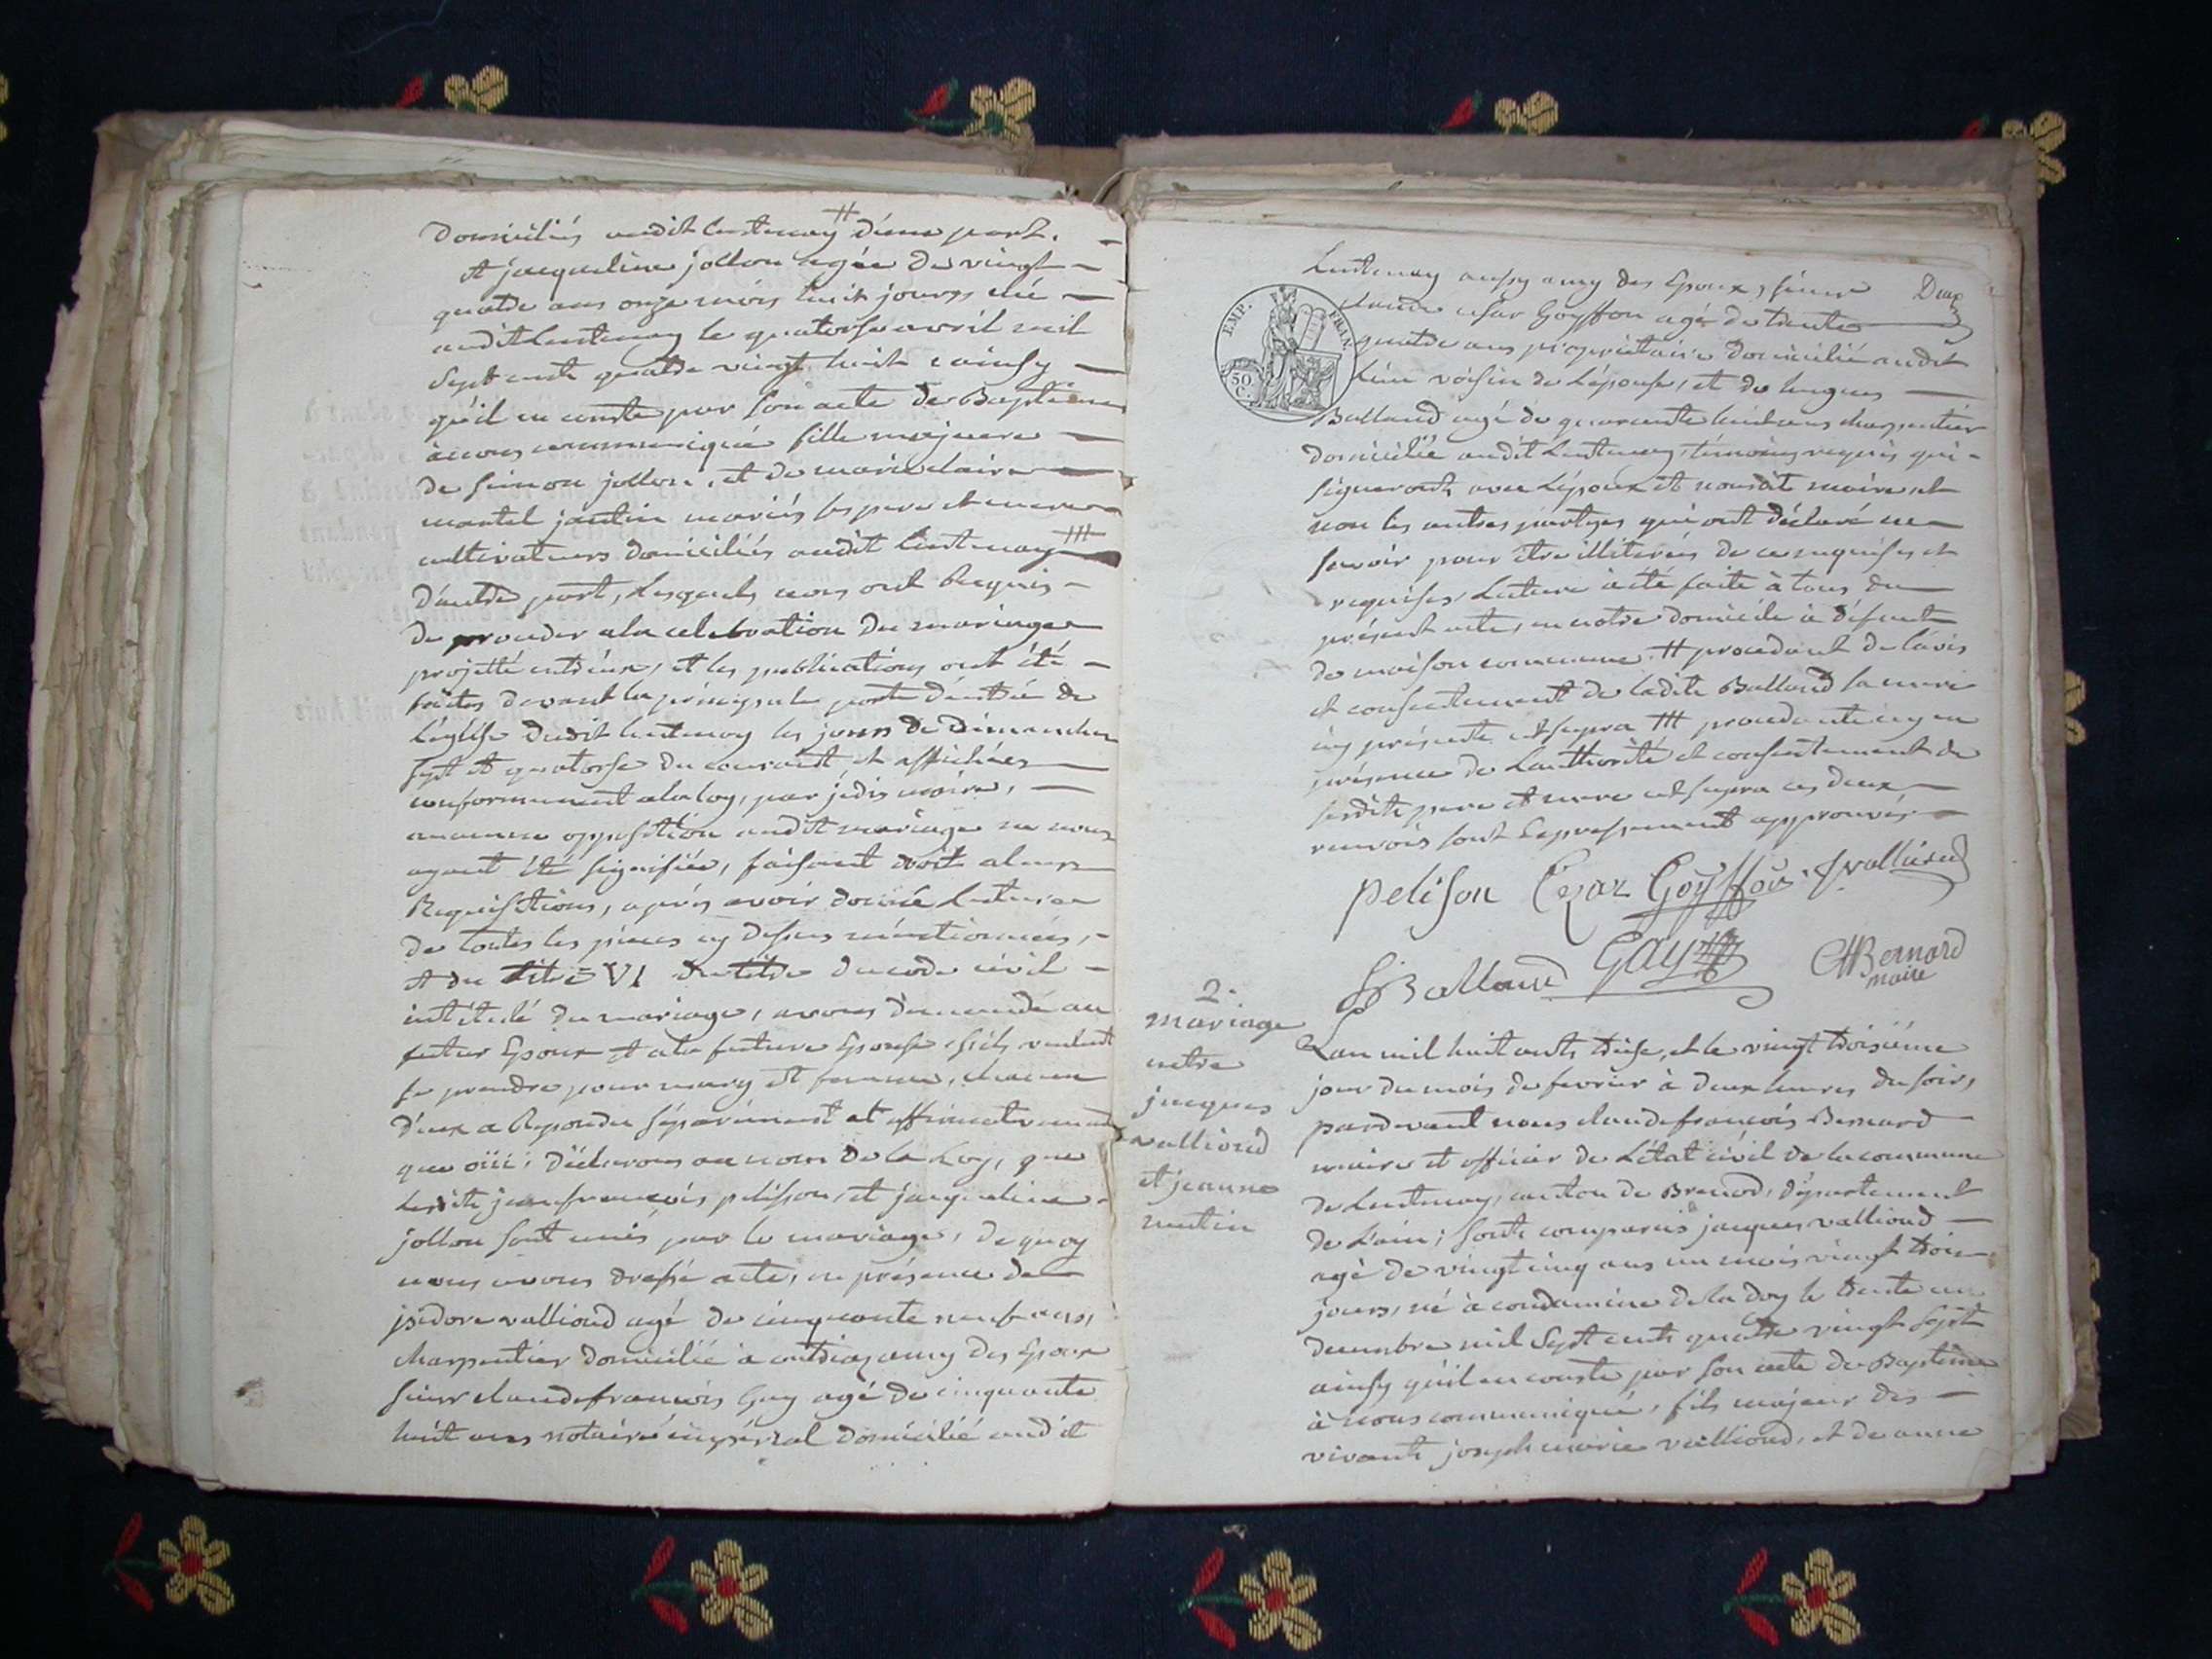 Domiciliés audit lentenay # d'une part.
et jacqueline jollon agée de vingt
quatre ans onze mois huit jours née
audit lentenay le quatorse avril mil
sept cents quatre vingt huit ainsy
qu'il en conste par son acte de Baptême
à nous communiqué fille majeure
de simon jollon, et de marie claire
martel jantin mariés ses pere et mere
cultivateurs domiciliés audit lentenay ##
D'autre part, Lesquels nous ont Requis
de proceder a la celebration du mariage
projetté entr'eux, et les publications ont été
faites devant la principale porte d'entrée de
L'eglise dudit lentenay les jours de Dimanche
sept et quatorse du courant et affichées
conformement a la loy, par jedis maire,
aucune opposition audit mariage ne nous
ayant été signifiée, faisant droit a leurs
Requisitions, après avoir donné Lecture
de toutes les pieces cy dessus mentionnées,
et du titre VI du titre du code civil
intitulé du mariage, avons demandé au
futur Epoux et a la future Epouse s'ils veulent
se prendre pour mary et femme, chacun
d'eux a Repondu séparément et affirmativement
que oüi; Déclarons au nom de la Loy, que
Lesdits jean françois pelisson, et jacqueline
jollon sont unis par le mariage, de quoy
nous avons dressé acte, en présence de
jsidore vallioud agé de cinquante neuf ans,
charpentier domicilié à amy des Epoux
sieur claude françois Gay agé de cinquante
huit ans notaire impérial domicilié audit
Lentenay aussy amy des Epoux, sieur Deux
EMP. FRAN.
50 C.
claude césar Goyffon agé de trente
quatre ans proprietaire domicilié audit
lieu voisin de L'épouse, et de hugues
Balland agé de quarante huit ans charpentier
domicilié audit Lentenay, témoins requis qui
signeront avec L'époux et nousdit maire et
non les autres partyes qui ont déclaré ne
savoir pour être illiterées de ce enquises et
requises, Lecture à été faite à tous du
présent acte, en notre domicile à défaut
de maison commune. # procedant de l'avis
et consentement de ladite Balland sa mere
icy présente et supra ## procedante icy en
présence de L'authorité et consentement de
sesdits pere et mere ut supra ces deux
renvois sont Expressement approuvés
peliSon Cezar Goyffon Jvallioud
h Balland GAY CF Bernard
maire
2.
mariage
entre
jacques
vallioud
et jeanne
mutin
L'an mil huit cents treise, et le vingt troisième
jour du mois de fevrier à deux heures du soir,
pardevant nous claude françois Bernard
maire et officier de L'état civil de la commune
de Lentenay, canton de Brenod, département
de L'ain; sont comparus jacques vallioud
agé de vingt cinq ans un mois vingt trois
jours, né à condamine de la doy le trente un
decembre mil Sept cents quatre vingt Sept
ainsy qu'il en conste par son acte de Baptême
à nous communiqué, fils majeur des
vivants joseph marie vallioud, et de anne